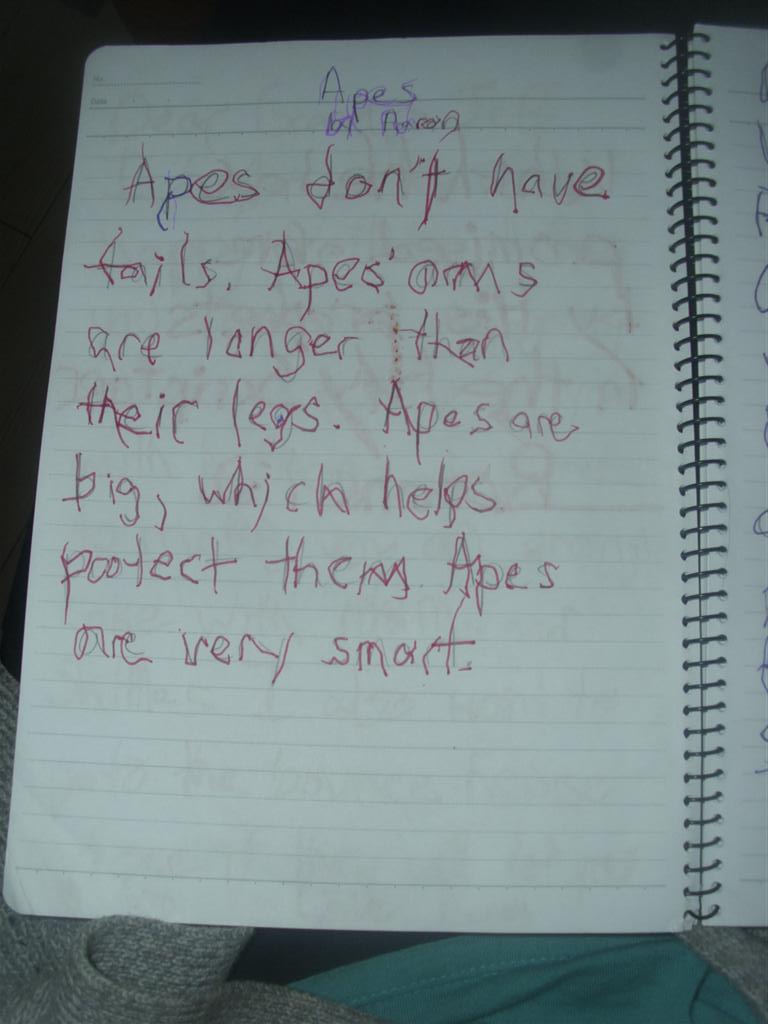 No.
Date
Apes
by Aaron
Apes don't have
tails. Apes' arms
are longer than
their legs. Apes are
big, which helps
protect them. Apes
are very smart.